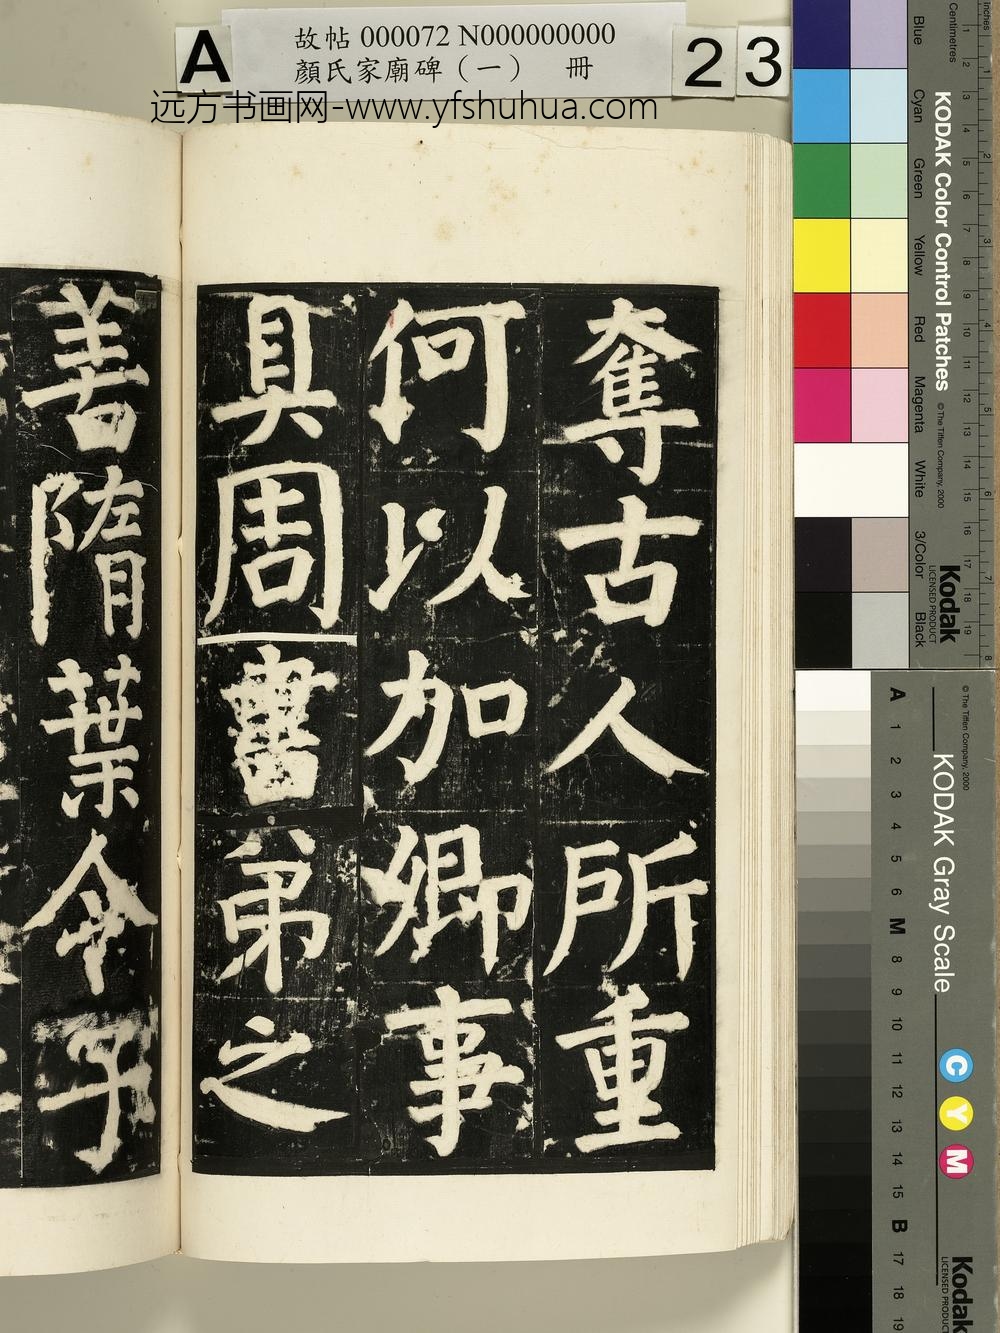 A
故帖 000072 N000000000
顏氏家廟碑（一） 冊
23
远方书画网-www.yfshuhua.com
奪古人所重
何以加卿事
具周書弟之
善隋葉令子
Inches
Centimetres
KODAK Color Control Patches
© The Tiffen Company, 2000
Kodak
LICENSED PRODUCT
Blue
Cyan
Green
Yellow
Red
Magenta
White
3/Color
Black
KODAK Gray Scale
© The Tiffen Company, 2000
C Y M
Kodak
LICENSED PRODUCT
A 1 2 3 4 5 6 M 8 9 10 11 12 13 14 15 B 17 18 19